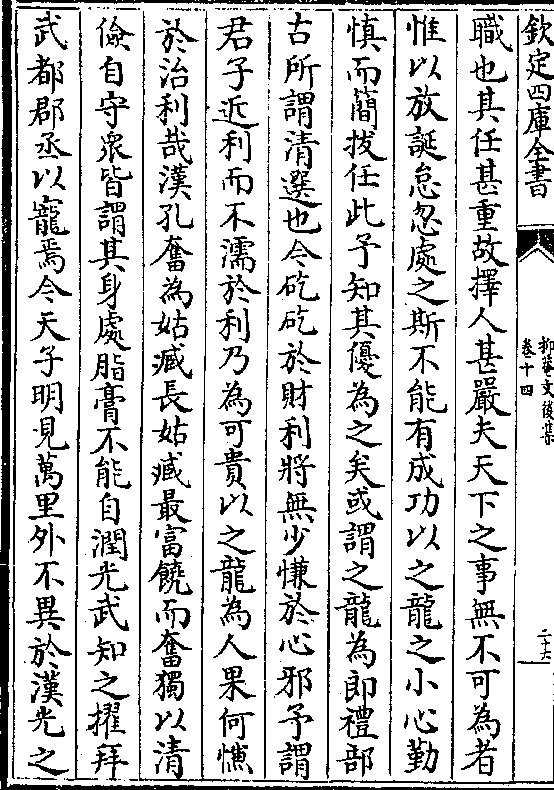 欽定四庫全書
抑菴文後集
卷十四
二十六
職也其任甚重故擇人甚嚴夫天下之事無不可為者
惟以放誕怠忽處之斯不能有成功以之龍之小心勤
慎而簡拔任此予知其優為之矣或謂之龍為郎禮部
古所謂清選也今矻矻於財利將無少慊於心邪予謂
君子近利而不濡於利乃為可貴以之龍為人果何憊
於治利哉漢孔奮為姑臧長姑臧最富饒而奮獨以清
儉自守衆皆謂其身處脂膏不能自潤光武知之擢拜
武都郡丞以寵焉今天子明見萬里外不異於漢光之